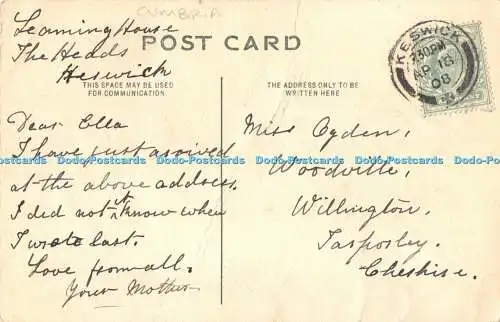 CUMBRIA
Leaming House
The Heads
Keswick
POST CARD
THIS SPACE MAY BE USED
FOR COMMUNICATION.
THE ADDRESS ONLY TO BE
WRITTEN HERE
KESWICK
7.30PM
AP 16
08
Dear Ella
I have just arrived
at the above address.
I did not it know when
I wrote last.
Love from all.
Your Mother
Miss Ogden,
Woodville,
Willington,
Tarporley,
Cheshire.
Dodo-Postcards Dodo-Postcards Dodo-Postcards Dodo-Postcards Dodo-Postcards Dodo-Postcards